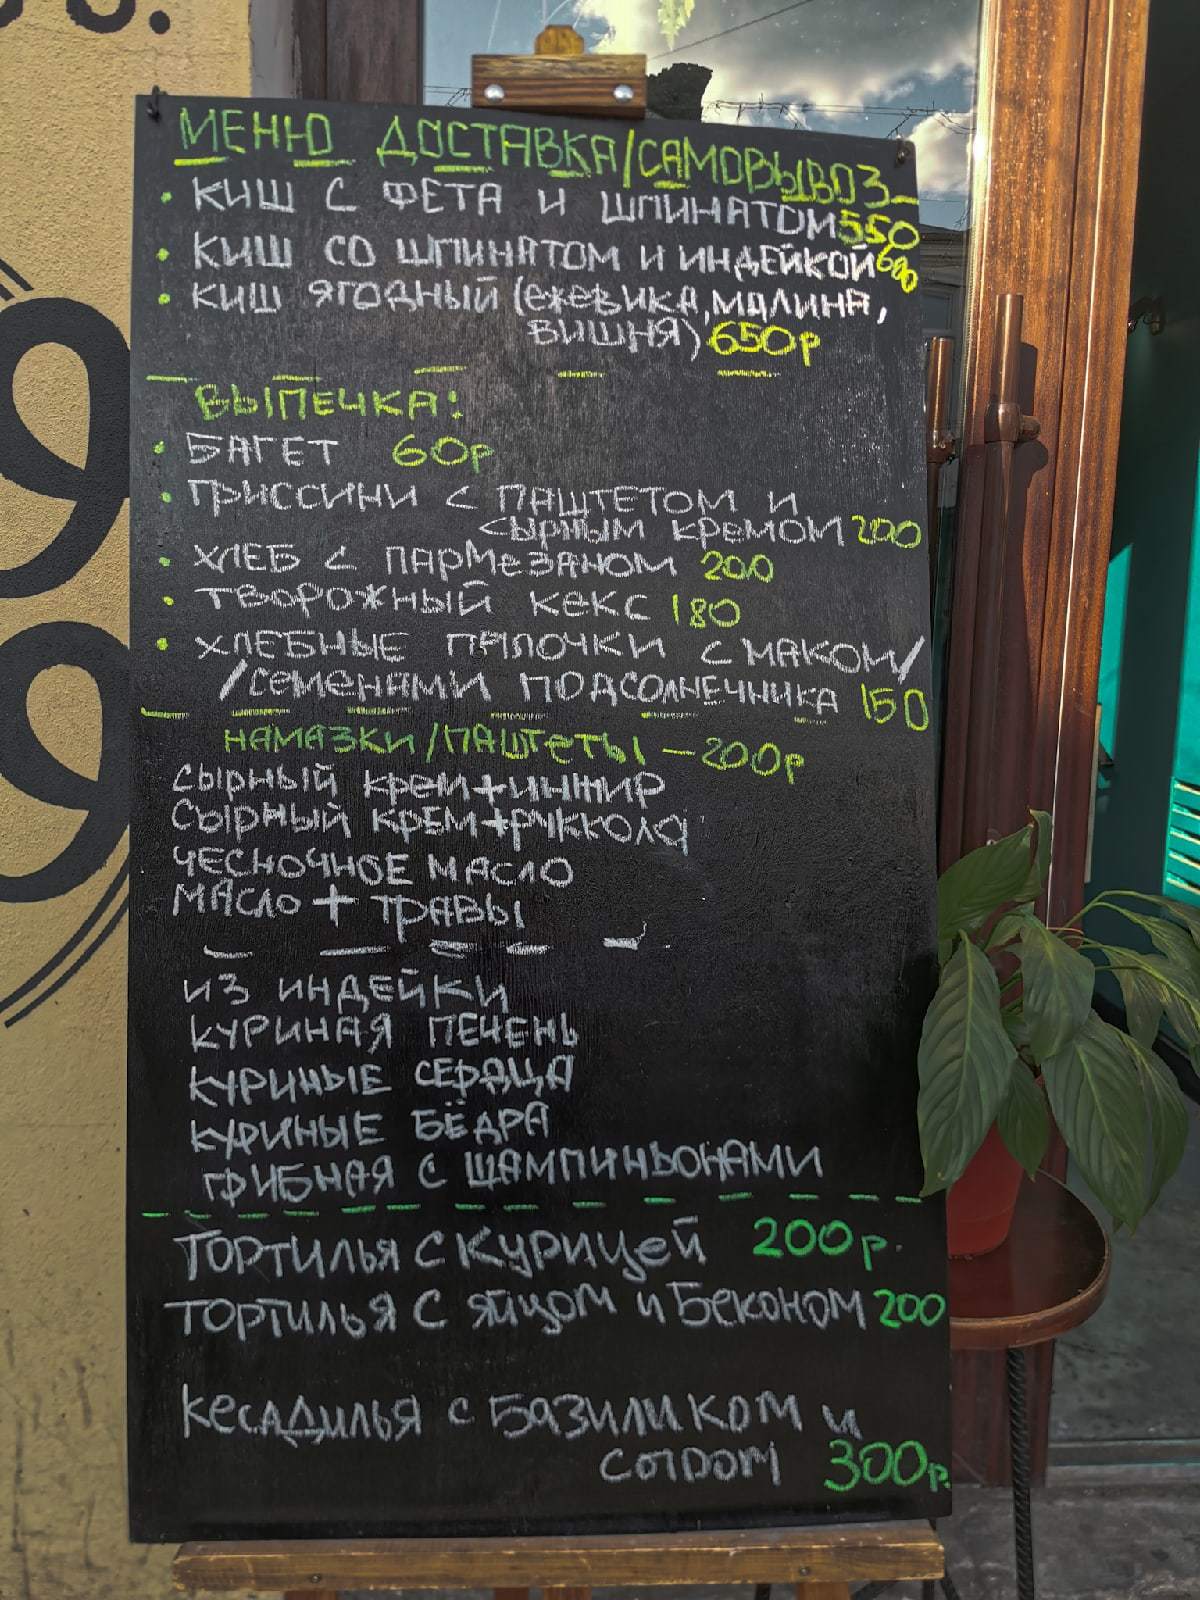 МЕНЮ ДОСТАВКА/САМОВЫВОЗ
• КИШ С ФЕТА И ШПИНАТОМ 550
• КИШ СО ШПИНАТОМ И ИНДЕЙКОЙ 600
• КИШ ЯГОДНЫЙ (ЕЖЕВИКА, МАЛИНА,
ВИШНЯ) 650р
ВЫПЕЧКА:
• БАГЕТ 60р
• ГРИССИНИ С ПАШТЕТОМ И
СЫРНЫМ КРЕМОМ 200
• ХЛЕБ С ПАРМЕЗАНОМ 200
• ТВОРОЖНЫЙ КЕКС 180
• ХЛЕБНЫЕ ПАЛОЧКИ С МАКОМ/
/СЕМЕНАМИ ПОДСОЛНЕЧНИКА 150
НАМАЗКИ/ПАШТЕТЫ – 200р
СЫРНЫЙ КРЕМ+ИНЖИР
СЫРНЫЙ КРЕМ+РУККОЛА
ЧЕСНОЧНОЕ МАСЛО
МАСЛО + ТРАВЫ
ИЗ ИНДЕЙКИ
КУРИНАЯ ПЕЧЕНЬ
КУРИНЫЕ СЕРДЦА
КУРИНЫЕ БЁДРА
ГРИБНАЯ С ШАМПИНЬОНАМИ
ТОРТИЛЬЯ С КУРИЦЕЙ 200р.
ТОРТИЛЬЯ С ЯЙЦОМ И БЕКОНОМ 200
КЕСАДИЛЬЯ С БАЗИЛИКОМ И
СЫРОМ 300р.